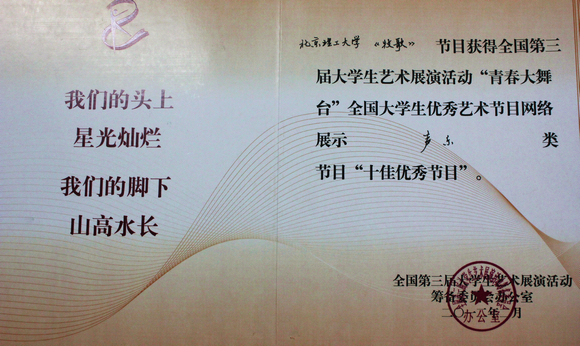 我们的头上
星光灿烂
我们的脚下
山高水长
北京理工大学 《牧歌》 节目获得全国第三
届大学生艺术展演活动“青春大舞
台”全国大学生优秀艺术节目网络
展示 声乐 类
节目“十佳优秀节目”。
全国第三届大学生艺术展演活动
筹备委员会办公室
办公室